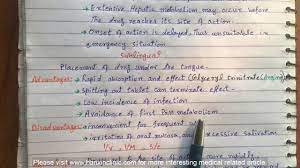 Extensive Hepatic metabolism may occur before
The drug reaches its site of action.
Onset of action is delayed, Thus unsuitable in
emergency situation.
Sublingual:
Placement of drug under the tongue.
Advantages: Rapid absorption and effect (Glyceryl trinitrate (Angina)
Spitting out tablet can terminate effect.
Low incidence of infection
Avoidance of First Pass metabolism
Disadvantages: inconvenient for frequent use
irritation of oral mucosa, and excessive salivation.
IV - IM - S/C
Please visit www.Harunclinic.com for more interesting medical related article